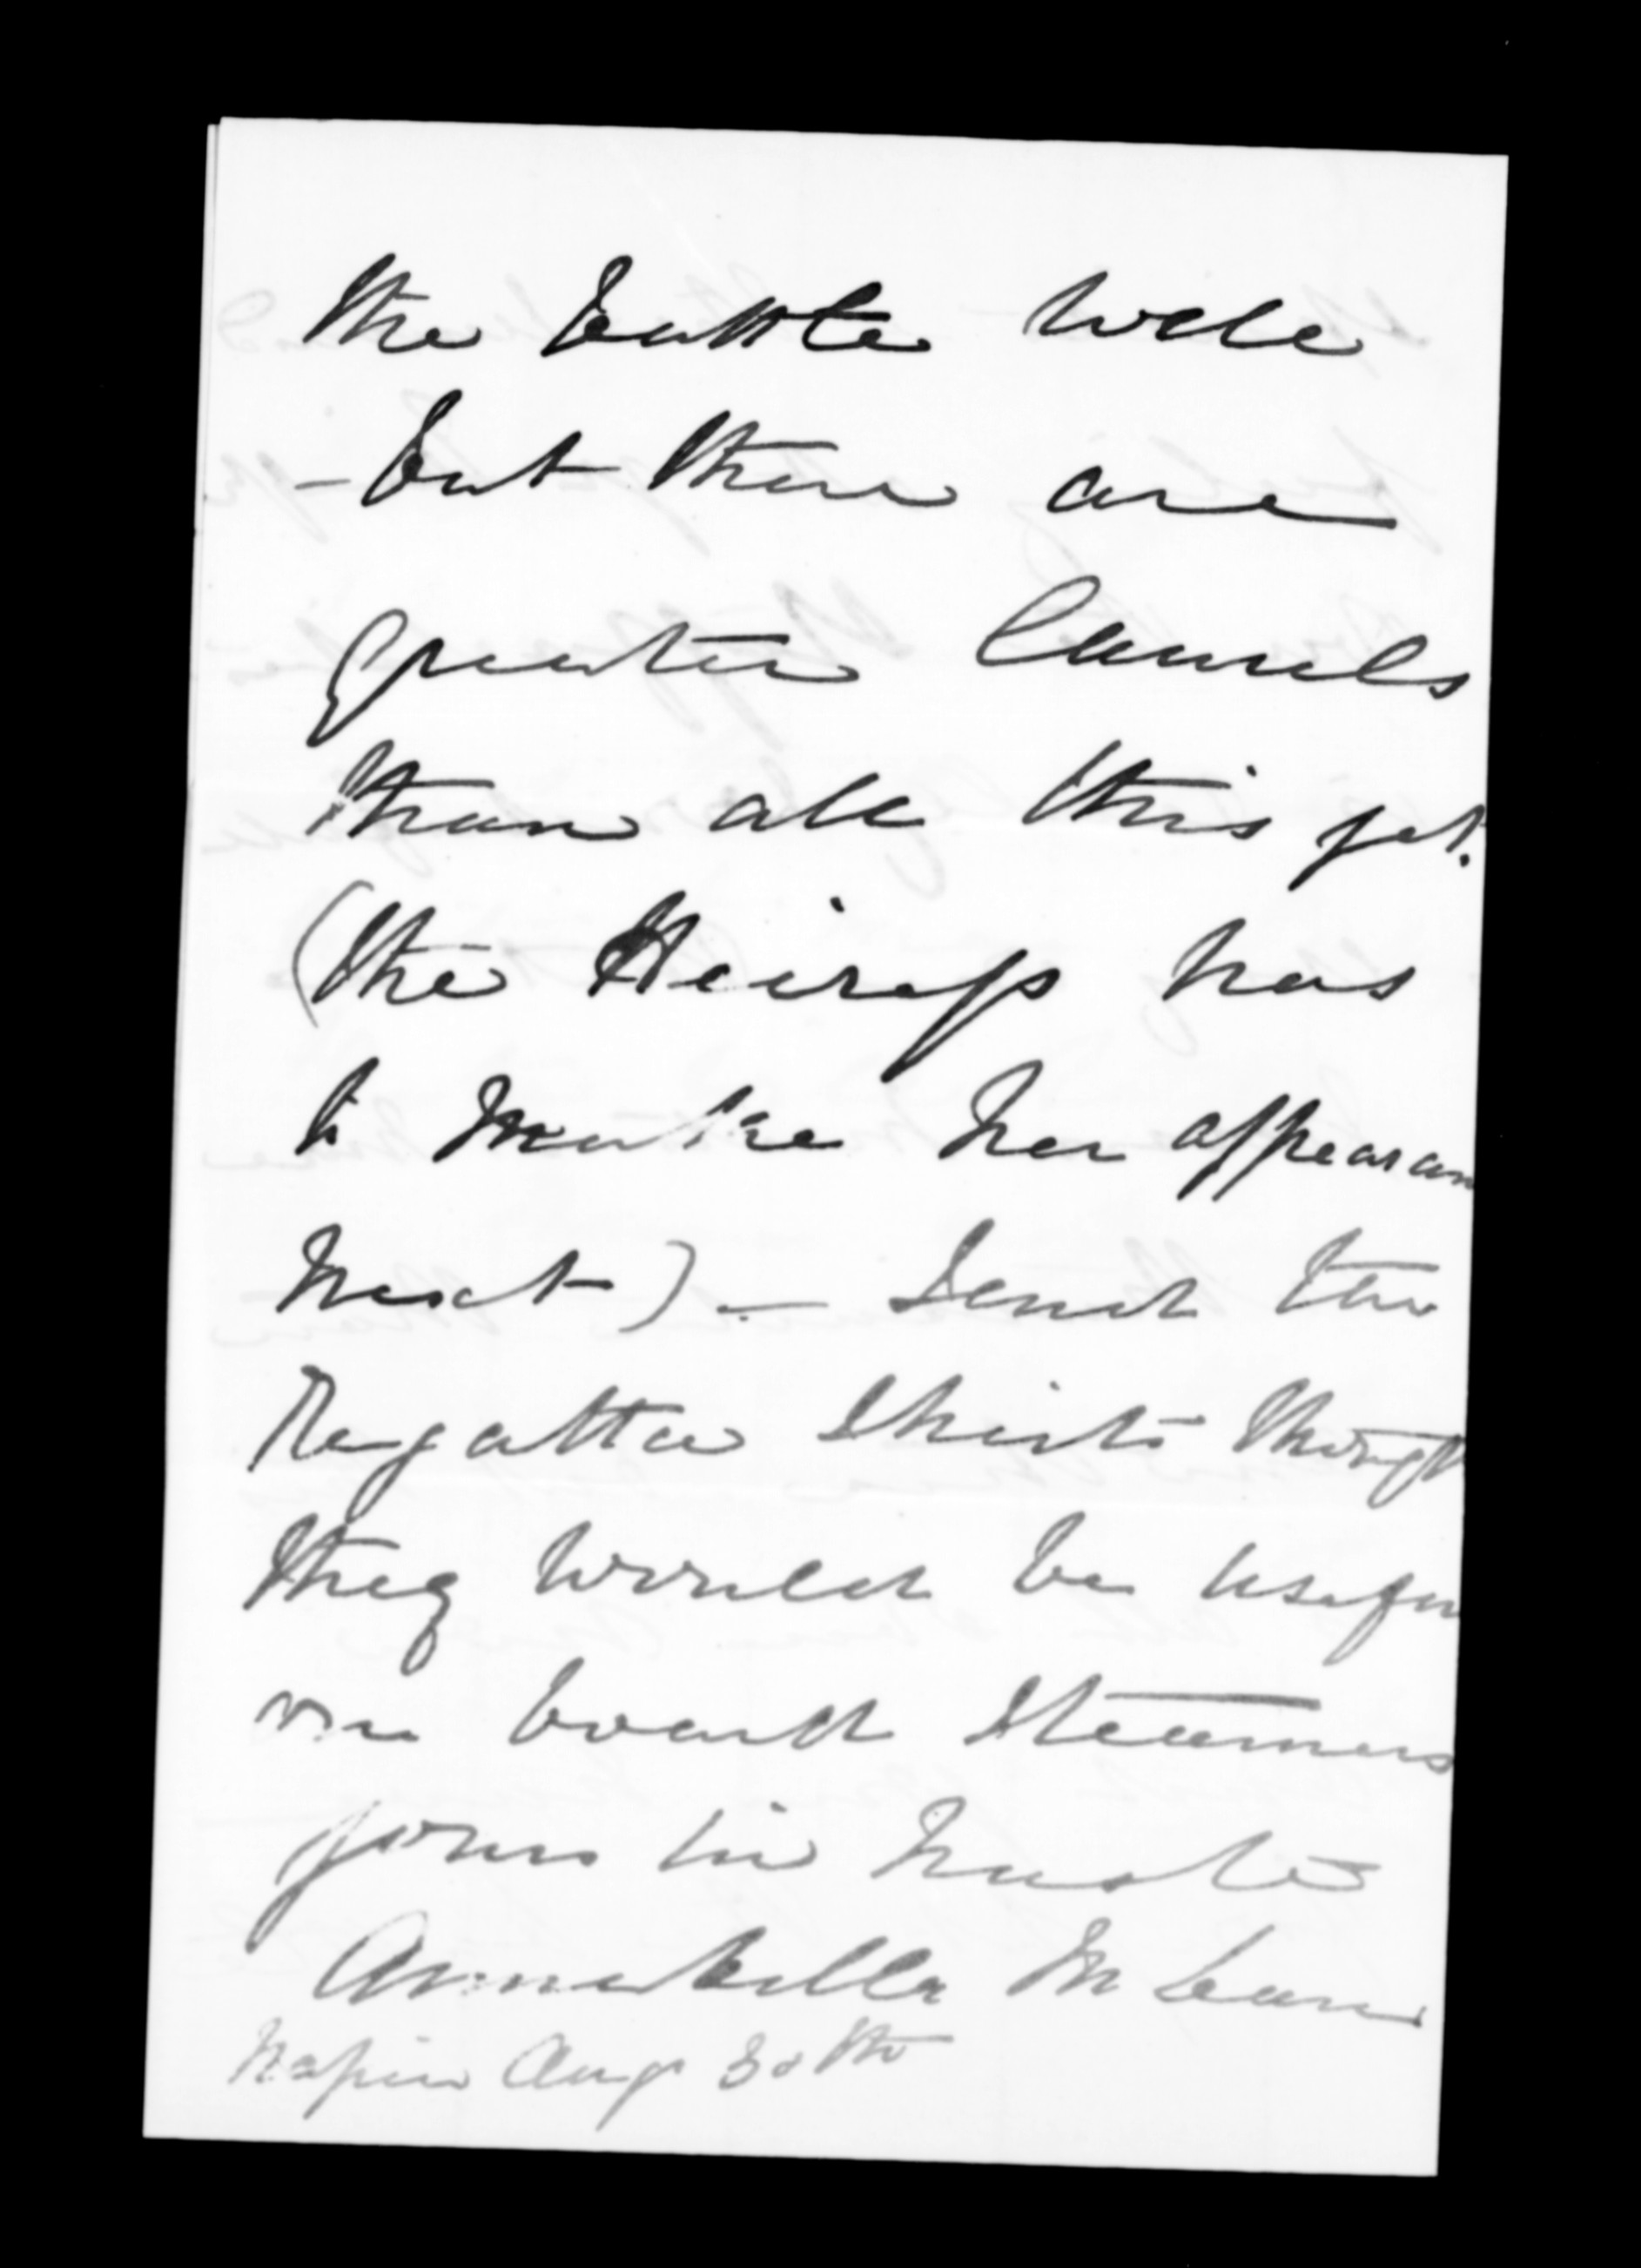 the battle well
- but there are
greater Laurels
than all this yet.
(the Heiress has
to make her appearan
next) - Send the
Regatta Shirts though
they would be usefu
on board Steamers
yours in haste
Annabella McLean
Napier Aug 30th